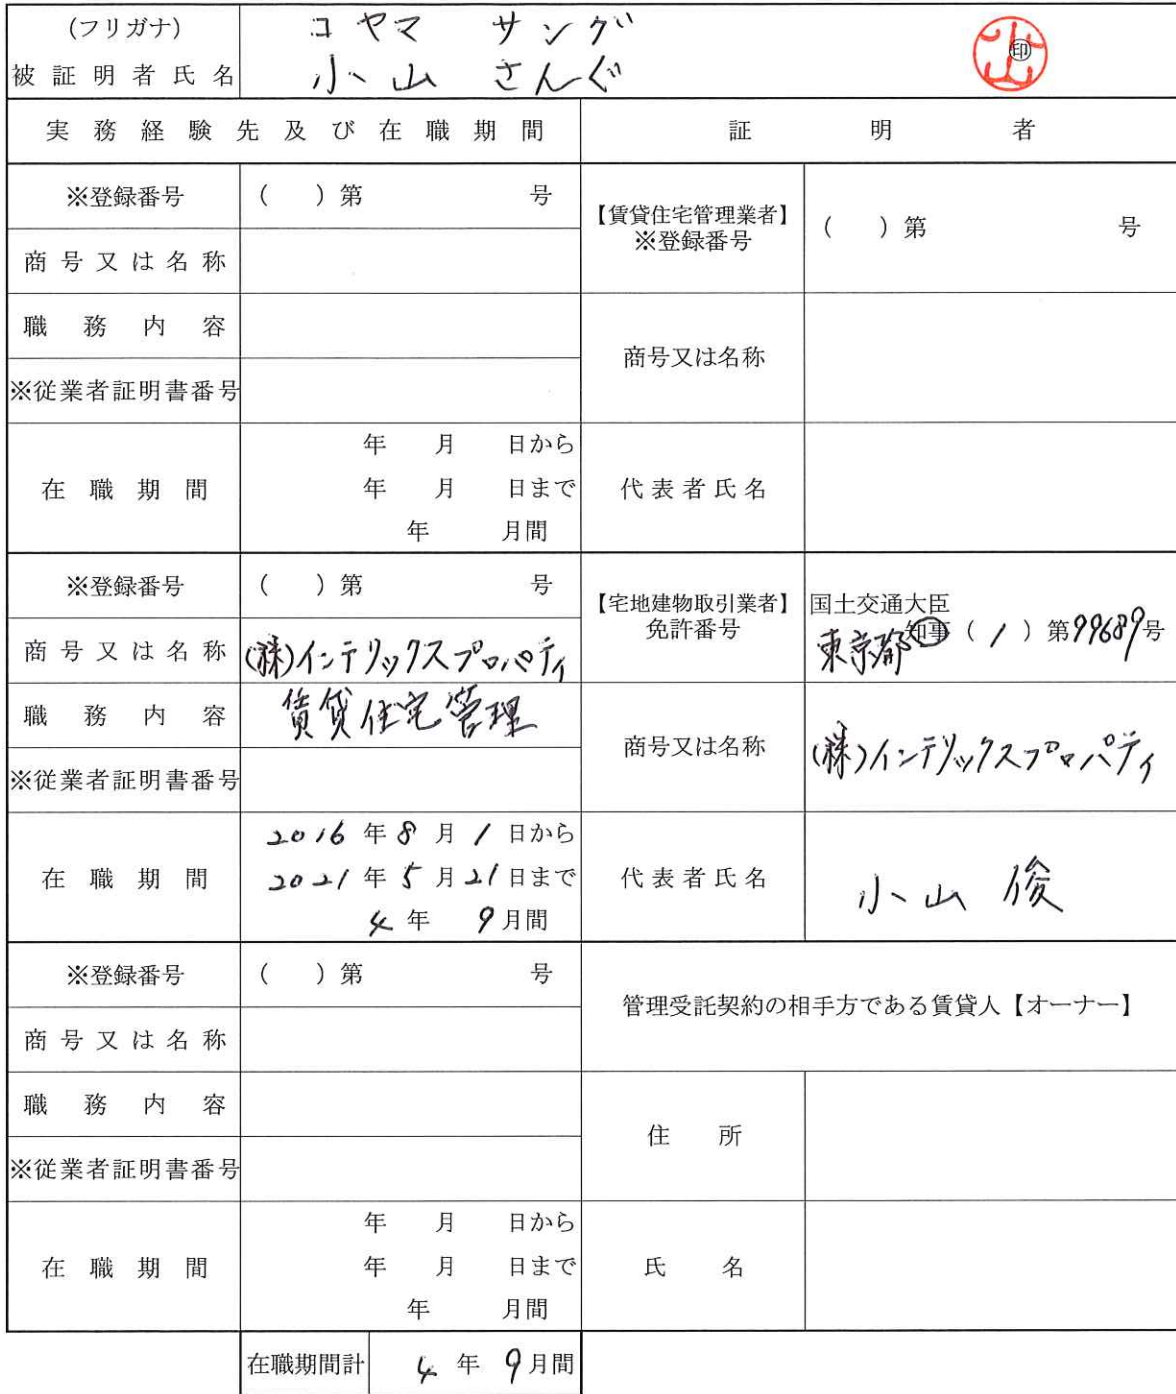 (フリガナ) コヤマ サング
被証明者氏名 小山 さんぐ 小山 印
実務経験先及び在職期間 証明者
※登録番号 ( )第 号
【賃貸住宅管理業者】
※登録番号 ( )第 号
商号又は名称
職務内容
商号又は名称
※従業者証明書番号
在職期間
年 月 日から
年 月 日まで
年 月間
代表者氏名
※登録番号 ( )第 号
【宅地建物取引業者】
免許番号
国土交通大臣
東京都 知事 ( 1 )第99689号
商号又は名称 (株)インテリックスプロパティ
職務内容 賃貸住宅管理
商号又は名称 (株)インテリックスプロパティ
※従業者証明書番号
在職期間
2016年8月1日から
2021年5月21日まで
4年 9月間
代表者氏名 小山 俊
※登録番号 ( )第 号
管理受託契約の相手方である賃貸人【オーナー】
商号又は名称
職務内容
住所
※従業者証明書番号
在職期間
年 月 日から
年 月 日まで
年 月間
氏名
在職期間計 4年 9月間